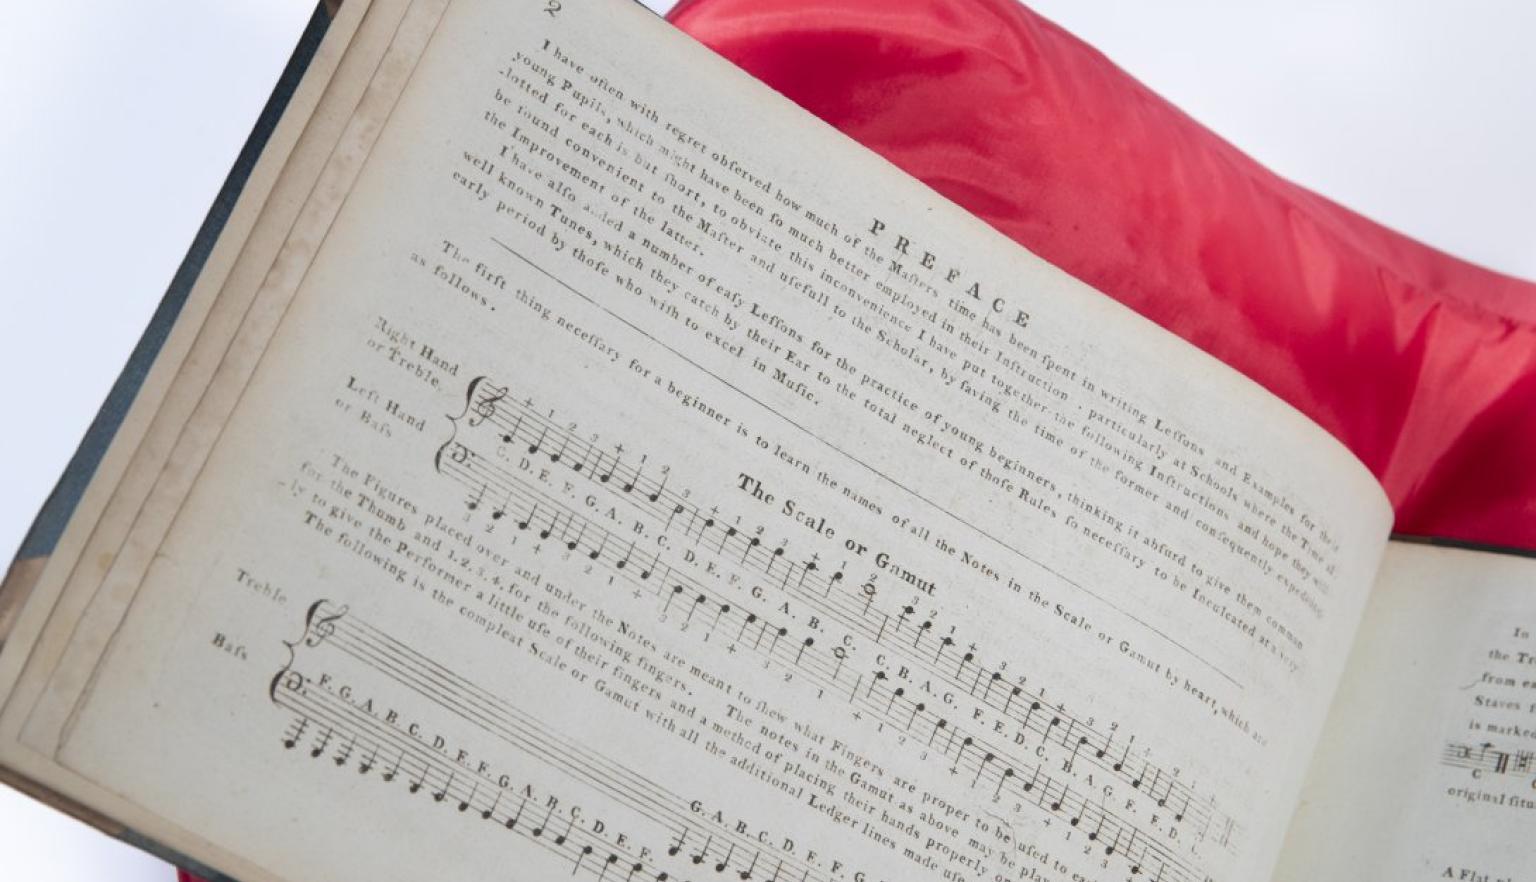 2
PREFACE
I have often with regret obſerved how much of the Maſters time has been ſpent in writing Leſſons and Examples for
young Pupils, which might have been ſo much better employed in their Inſtruction: particularly at Schools where the Time al
-lotted for each is but ſhort, to obviate this inconvenience I have put together the following Inſtructions, and hope they will
be found convenient to the Maſter and uſefull to the Scholar, by ſaving the time of the former and conſequently expediting
the Improvement of the latter.
I have alſo added a number of eaſy Leſſons for the practice of young beginners, thinking it abſurd to give them common
well known Tunes, which they catch by their Ear to the total neglect of thoſe Rules ſo neceſſary to be Inculcated at a very
early period by thoſe who wiſh to excel in Muſic.
The firſt thing neceſſary for a beginner is to learn the names of all the Notes in the Scale or Gamut by heart, which are
as follows.
The Scale or Gamut
Right Hand
or Treble.
+ 1 2 3 + 1 2 3 + 1 2 3 + 1 2 3 2 1 + 3 2 1 + 3 2 1 + 2 1 +
C. D. E. F. G. A. B. C. D. E. F. G. A. B. C. C. B. A. G. F. E. D. C. B. A. G. F. E. D. C.
Left Hand
or Baſs
3 2 1 + 3 2 1 + 3 2 1 + 3 2 1 + 1 2 3 + 1 2 3 + 1 2 3
The Figures placed over and under the Notes are meant to ſhew what Fingers are proper to be uſed to
for the Thumb and 1. 2. 3. 4. for the following fingers. The notes in the Gamut as above may be
-ly to give the Performer a little uſe of their fingers and a method of placing their hands properly,
The following is the compleat Scale or Gamut with all the additional Ledger lines made
Treble
G. A. B. C. D. E. F. G.
Baſs
F. G. A. B. C. D. E. F. G. A. B. C. D. E. F.
the
from
Staves
is marked
C
original
A Flat